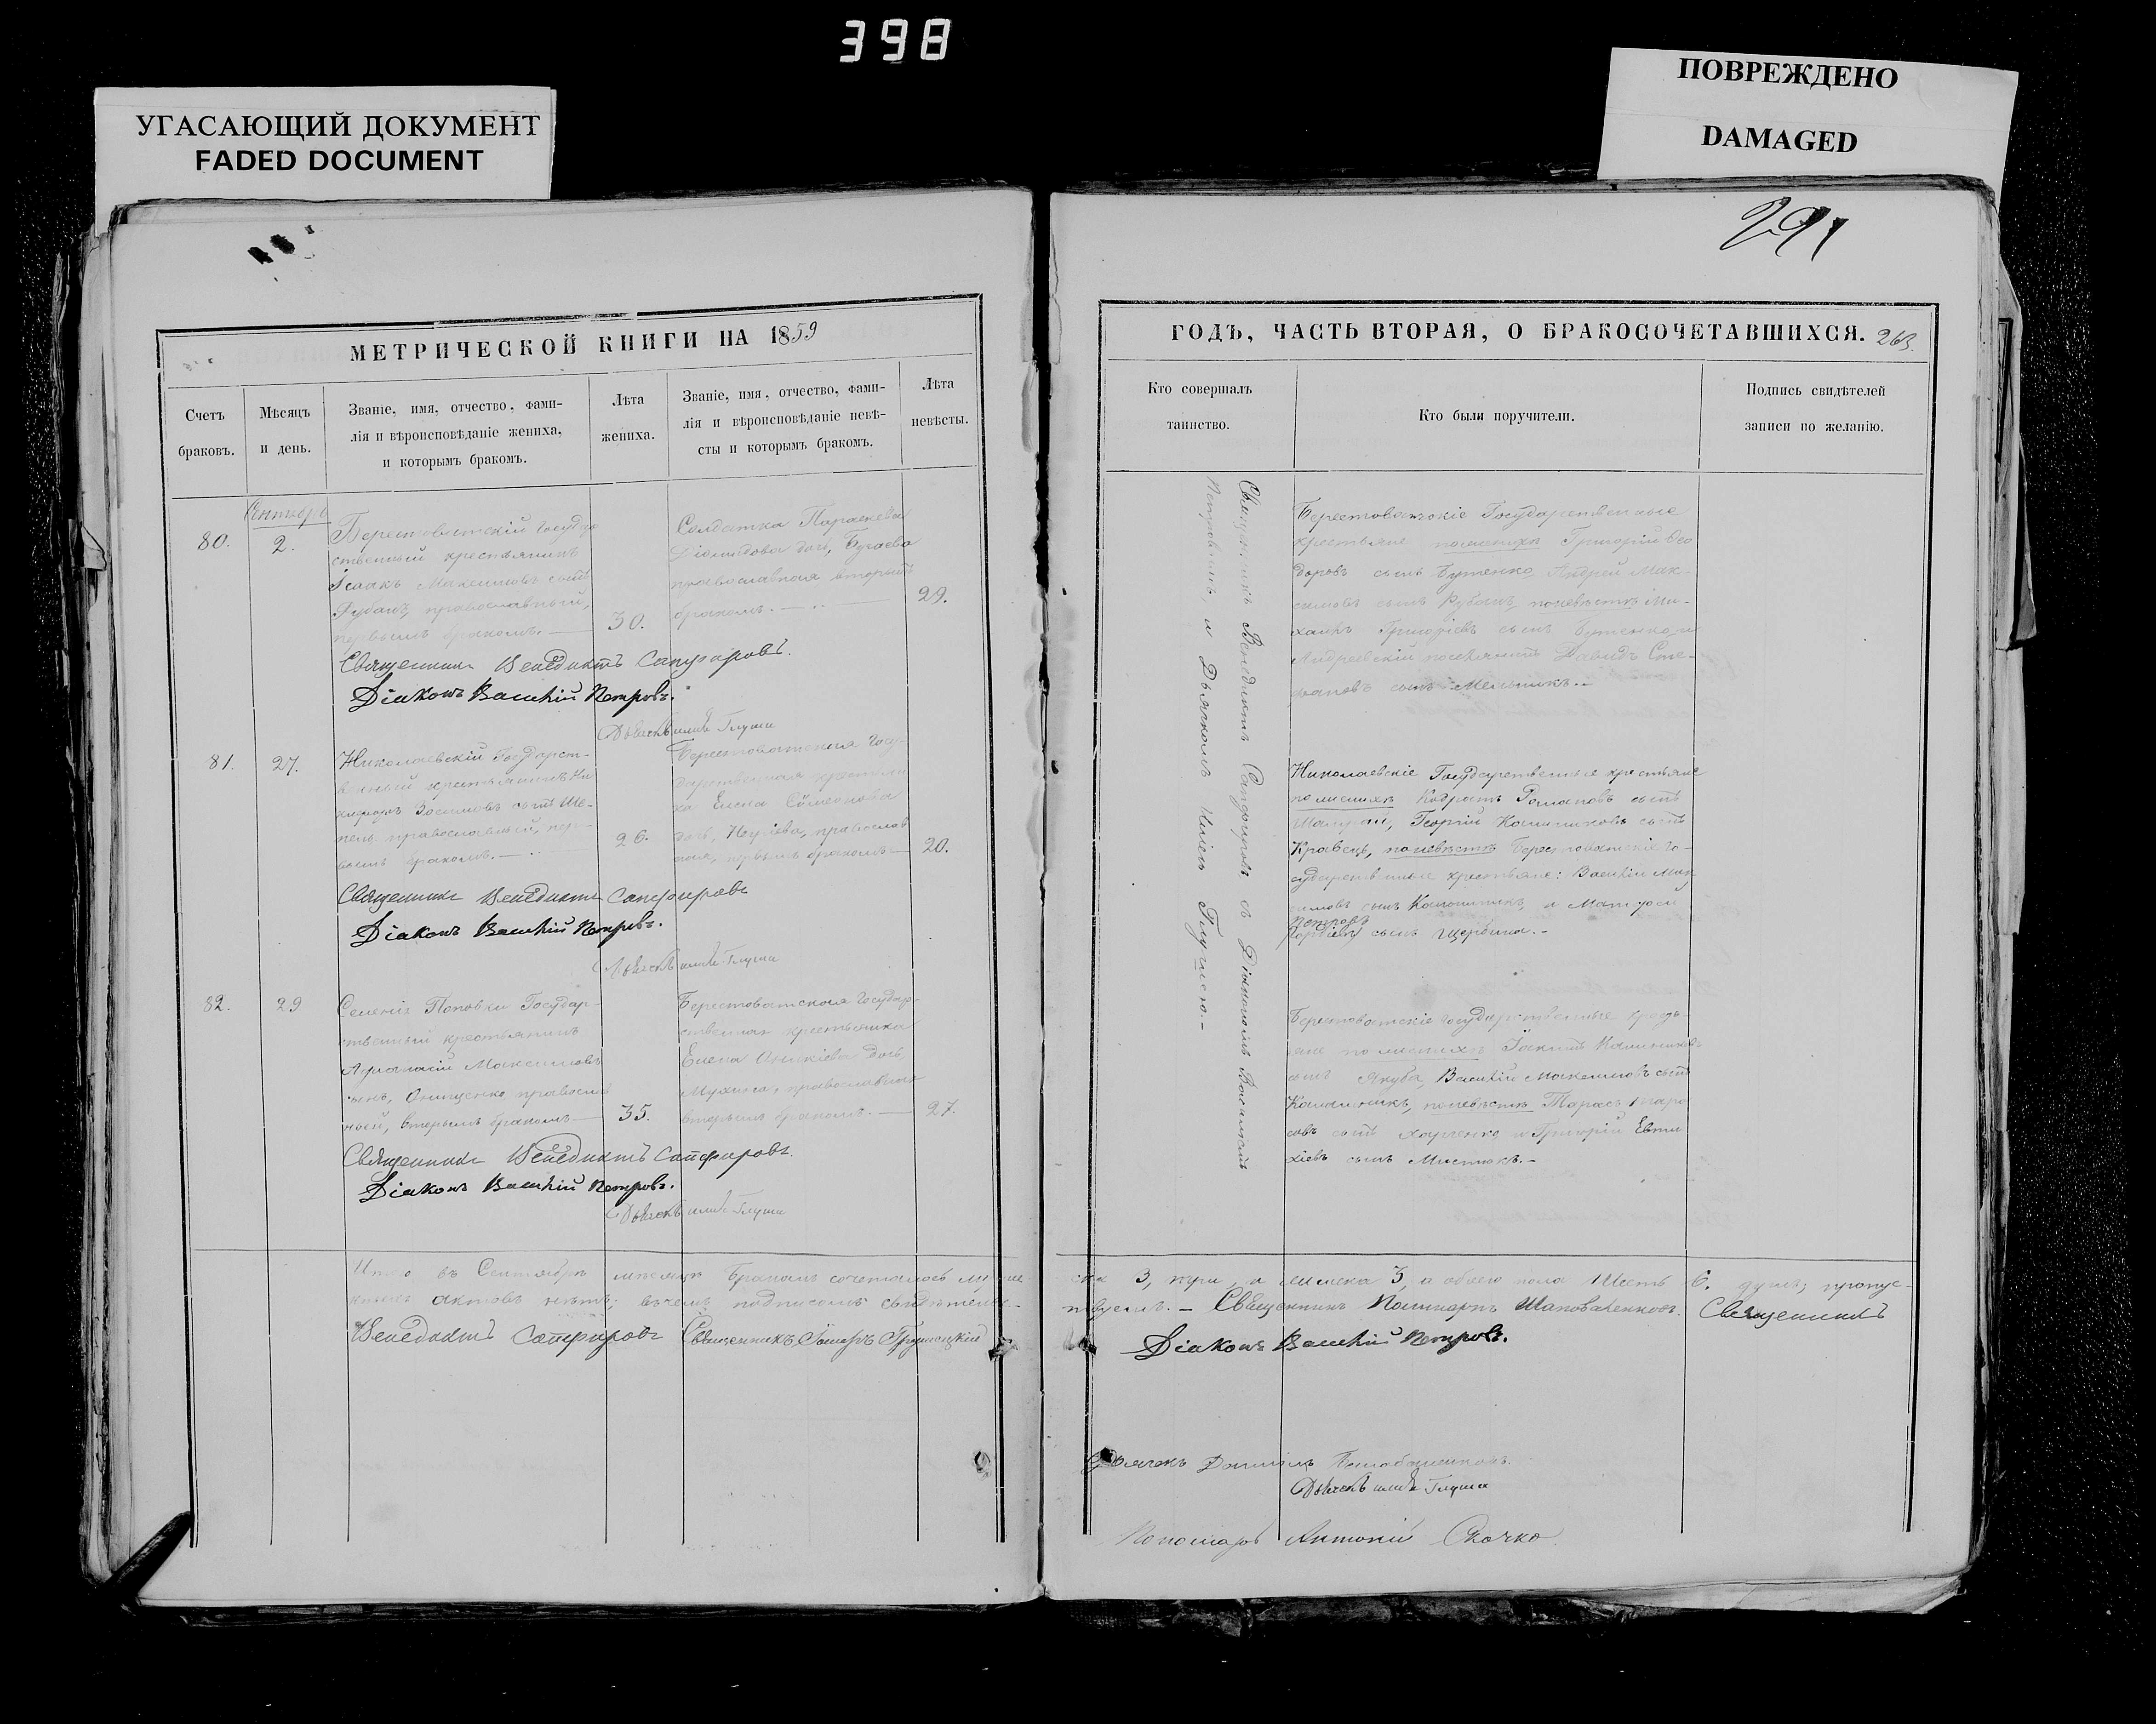 398
УГАСАЮЩИЙ ДОКУМЕНТ
FADED DOCUMENT
ПОВРЕЖДЕНО
DAMAGED
291
МЕТРИЧЕСКОЙ КНИГИ НА 1859
Счетъ
браковъ.
Мѣсяцъ
и день.
Званіе, имя, отчество, фами-
лія и вѣроисповѣданіе жениха,
и которымъ бракомъ.
Лѣта
жениха.
Званіе, имя, отчество, фами-
лія и вѣроисповѣданіе невѣ-
сты и которымъ бракомъ.
Лѣта
невѣсты.
80.
2.
Берестоватскій Государ
ственный крестьянинъ
Ісаакъ Максимовъ сынъ
Рубанъ, православный,
первымъ бракомъ.
30.
Солдатка Параскева
Діомидова дочь, Бугаева
православная вторымъ
бракомъ.
29.
Священникъ Венедиктъ Сапфировъ.
Діаконъ Василій Петровъ.
Дьячекъ Илія Глуша
81.
27.
Николаевскій Государст-
венный крестьянинъ Ни
кифоръ Зосимовъ сынъ Ше-
пель православный, пер-
вымъ бракомъ.
26.
Берестоватская Госу-
дарственная крестьян
ка Елена Сѵмеонова
дочь, православ
ная, первымъ бракомъ
20.
Священникъ Венедиктъ Сапфировъ
Діаконъ Василій Петровъ.
Дьячекъ Илія Глуша
82.
29
Селенія Поповки Государ-
ственный крестьянинъ
Афанасій Максимовъ
сынъ, Онищенко, православ
ный, вторымъ бракомъ
35.
Берестоватская Государ-
ственная крестьянка
Елена Аникіева дочь,
Мухина, православная
вторымъ бракомъ.
27.
Священникъ Венедиктъ Сапфировъ.
Діаконъ Василій Петровъ.
Дьячекъ Илія Глуша
Итого въ Сентябрѣ мѣсяцѣ бракомъ сочеталось
актовъ нѣтъ; въ чемъ подписомъ свидѣтельс-
Венедиктъ Сапфировъ Священникъ
ГОДЪ, ЧАСТЬ ВТОРАЯ, О БРАКОСОЧЕТАВШИХСЯ. 263.
Кто совершалъ
таинство.
Кто были поручители.
Подпись свидѣтелей
записи по желанію.
Священникъ Венедиктъ Сапфировъ съ Діакономъ Василіемъ
Петровымъ, и Дьячкомъ Иліею Глушею.
Берестоватскіе Государственные
крестьяне по женихѣ Григорій Ѳео
доровъ сынъ Бутенко, Андрей Мак-
симовъ сынъ Рубанъ, по невѣстѣ Ми-
хаилъ Григорьевъ сынъ Бутенко и
Андреевскій поселянинъ Давидъ Сте-
фановъ сынъ Мельникъ.
Николаевскіе Государственные крестьяне
по женихѣ Кодратъ Романовъ сынъ
Георгій Калинниковъ сынъ
Кравецъ, по невѣстѣ Берестоватскіе Го-
сударственные крестьяне: Василій Мак
симовъ сынъ и
Петровъ
сынъ Щербина.
Берестоватскіе Государственные кресть-
яне по женихѣ Іакимъ Калинниковъ
сынъ Якуба, Василій Максимовъ сынъ
по невѣстѣ Тарасъ
совъ сынъ Харченко и Григорій Евти
хіевъ сынъ
3, и женска 3, а обоего пола шесть 6. душъ; пропус-
твуемъ. Священникъ Шаповаленковъ. Священникъ
Діаконъ Василій Петровъ.
Дьячекъ Даніилъ
Дьячекъ Илія Глуша
Пономарь Антоній Скочко